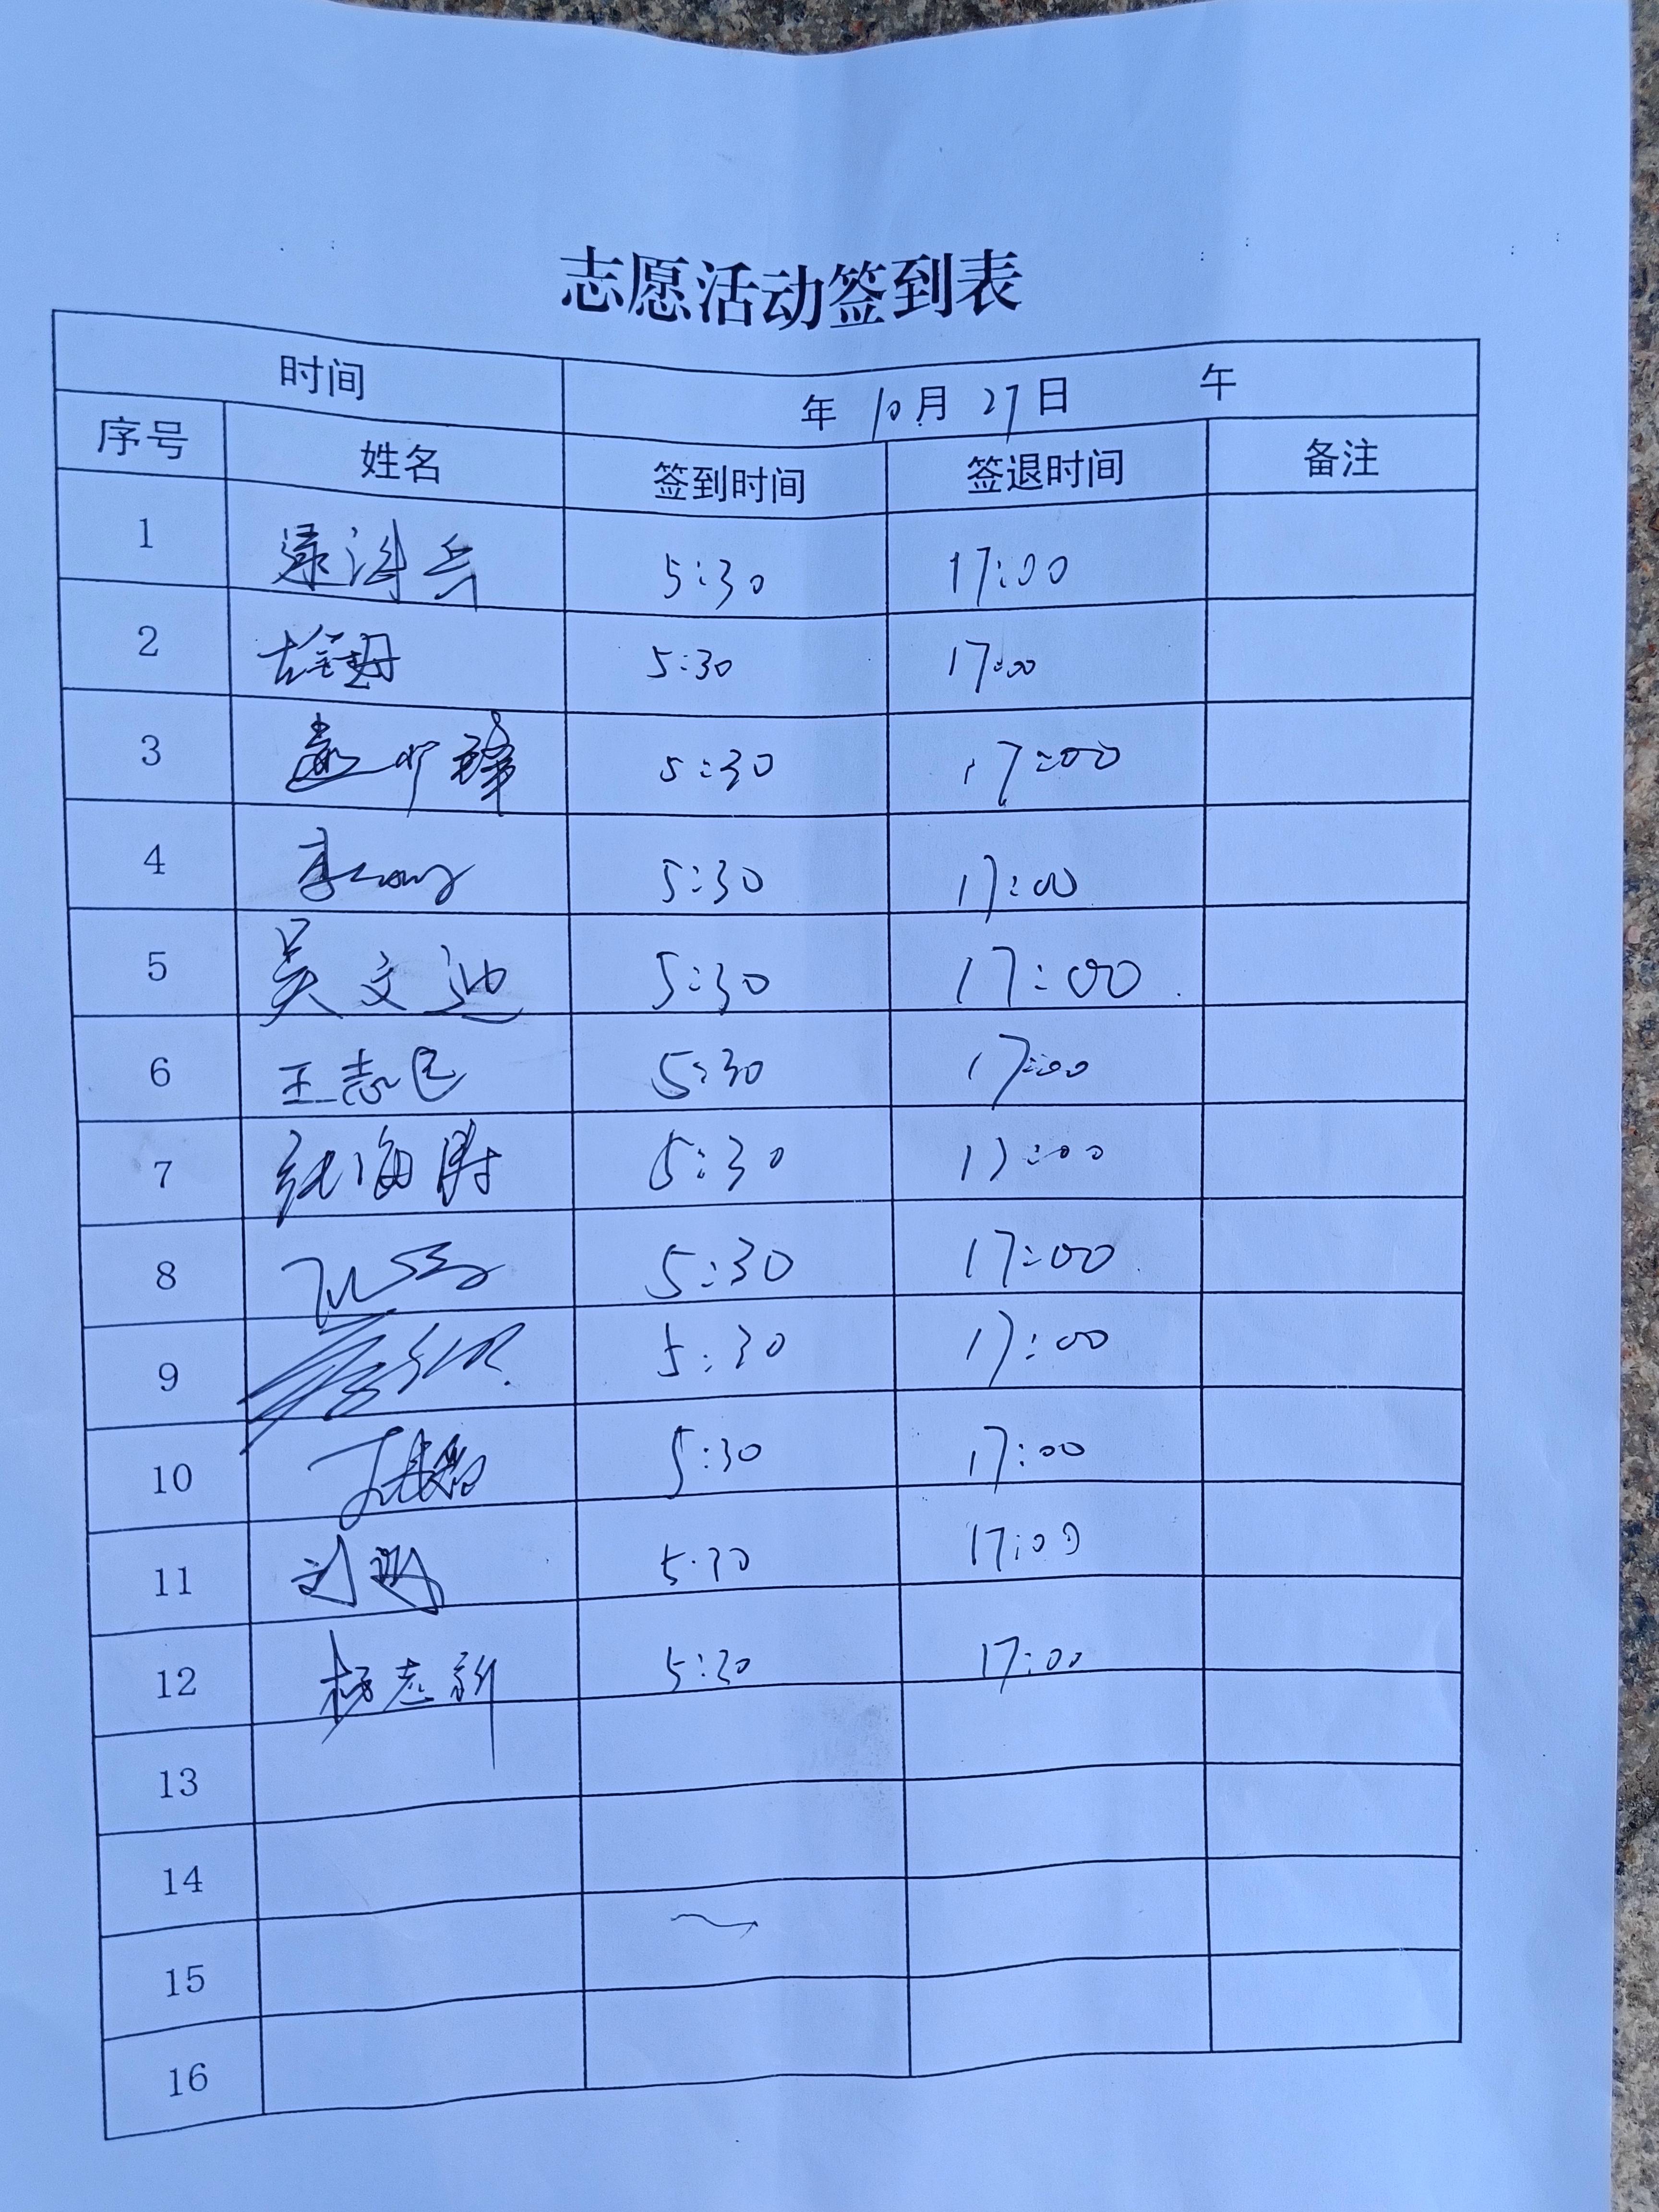 志愿活动签到表
时间 年 10月 27日 午
序号 姓名 签到时间 签退时间 备注
1 5:30 17:00
2 5:30 17:00
3 5:30 17:00
4 5:30 17:00
5 吴文迪 5:30 17:00
6 王志民 5:30 17:00
7 张海胜 5:30 17:00
8 5:30 17:00
9 5:30 17:00
10 5:30 17:00
11 刘 5:30 17:00
12 杨志新 5:30 17:00
13
14
15
16